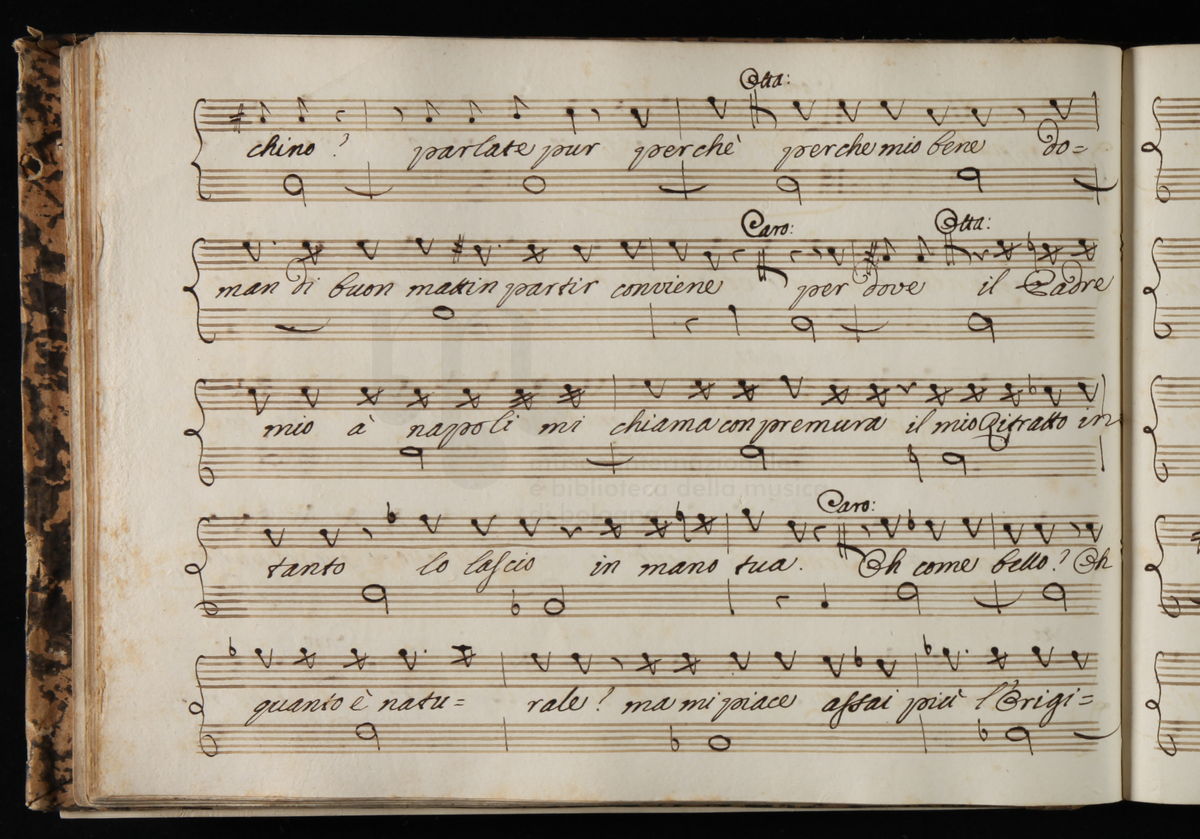 Otta:
chino? parlate pur perchè perche mio bene do=
Caro: Otta:
man di buon mattin partir conviene per dove il Padre
mio à napoli mi chiama con premura il mio Ritratto in
Caro:
tanto lo lascio in mano tua. Oh come bello? Oh
quanto è natu= rale? ma mi piace assai più l'Origi=
museo internazionale
e biblioteca della musica
di bologna